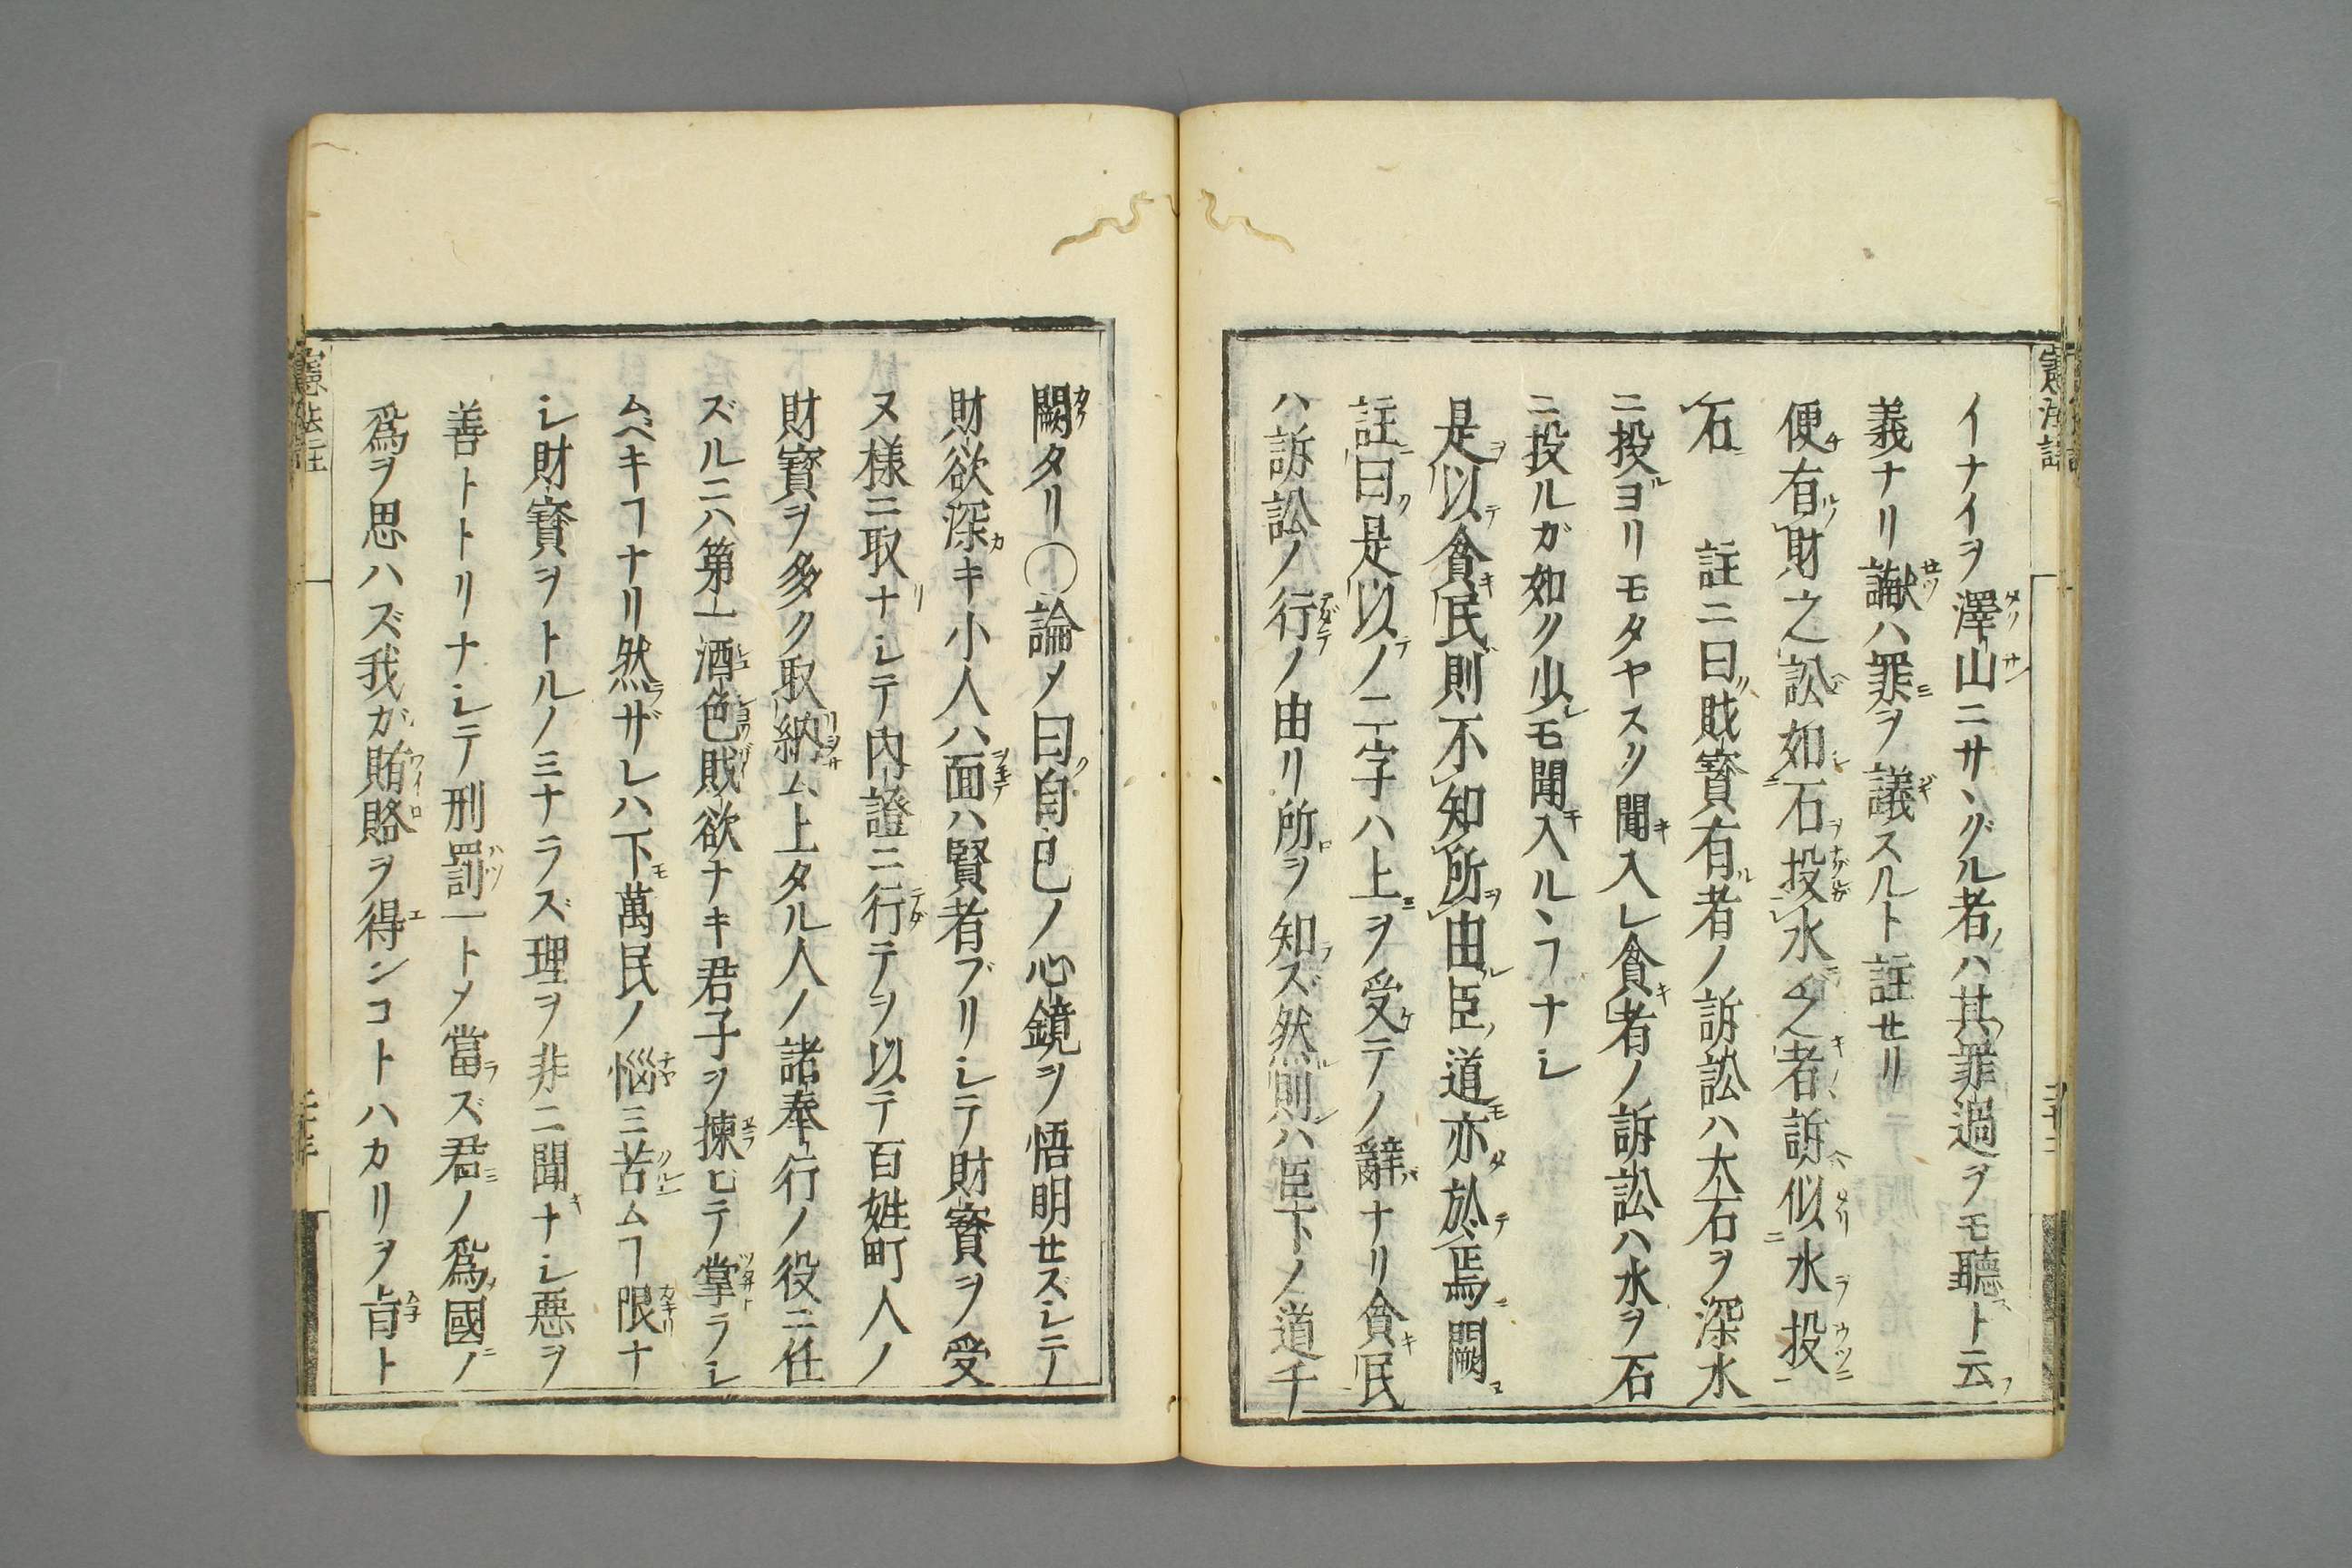 イナイヲ澤山ニサヽグル者ハ其罪過ヲモ聽ト云
義ナリ讞ハ罪ヲ議スルト註セリ
便有財之訟如石投水乏者訴似水投
石　註ニ曰財寳有者ノ訴訟ハ大石ヲ深水
ニ投ヨリモタヤスク聞入レ貪者ノ訴訟ハ水ヲ石
ニ投ルガ如ク少モ聞入ルヽヿナシ
是以貪民則不知所由臣道亦於焉闕
註曰是以ノ二字ハ上ヲ受テノ辭ナリ貪民
ハ訴訟ノ行ノ由リ所ヲ知ズ然則ハ臣下ノ道千
闕タリ〇論メ曰自己ノ心鏡ヲ悟明セズシテ
財欲深キ小人ハ面ハ賢者ブリシテ財寳ヲ受
ヌ様ニ取ナシテ内證ニ行テヲ以テ百姓町人ノ
財寳ヲ多ク取納ム上タル人ノ諸奉行ノ役ニ任
ズルニハ第一酒色財欲ナキ君子ヲ揀ヒテ掌ラシ
ムベキヿナリ然ザレハ下萬民ノ悩ミ苦ムヿ限ナ
シ財寳ヲトルノミナラズ理ヲ非ニ聞ナシ惡ヲ
善トトリナシテ刑罰一トメ當ズ君ノ爲國ノ
爲ヲ思ハズ我が賄賂ヲ得ンコトハカリヲ旨ト